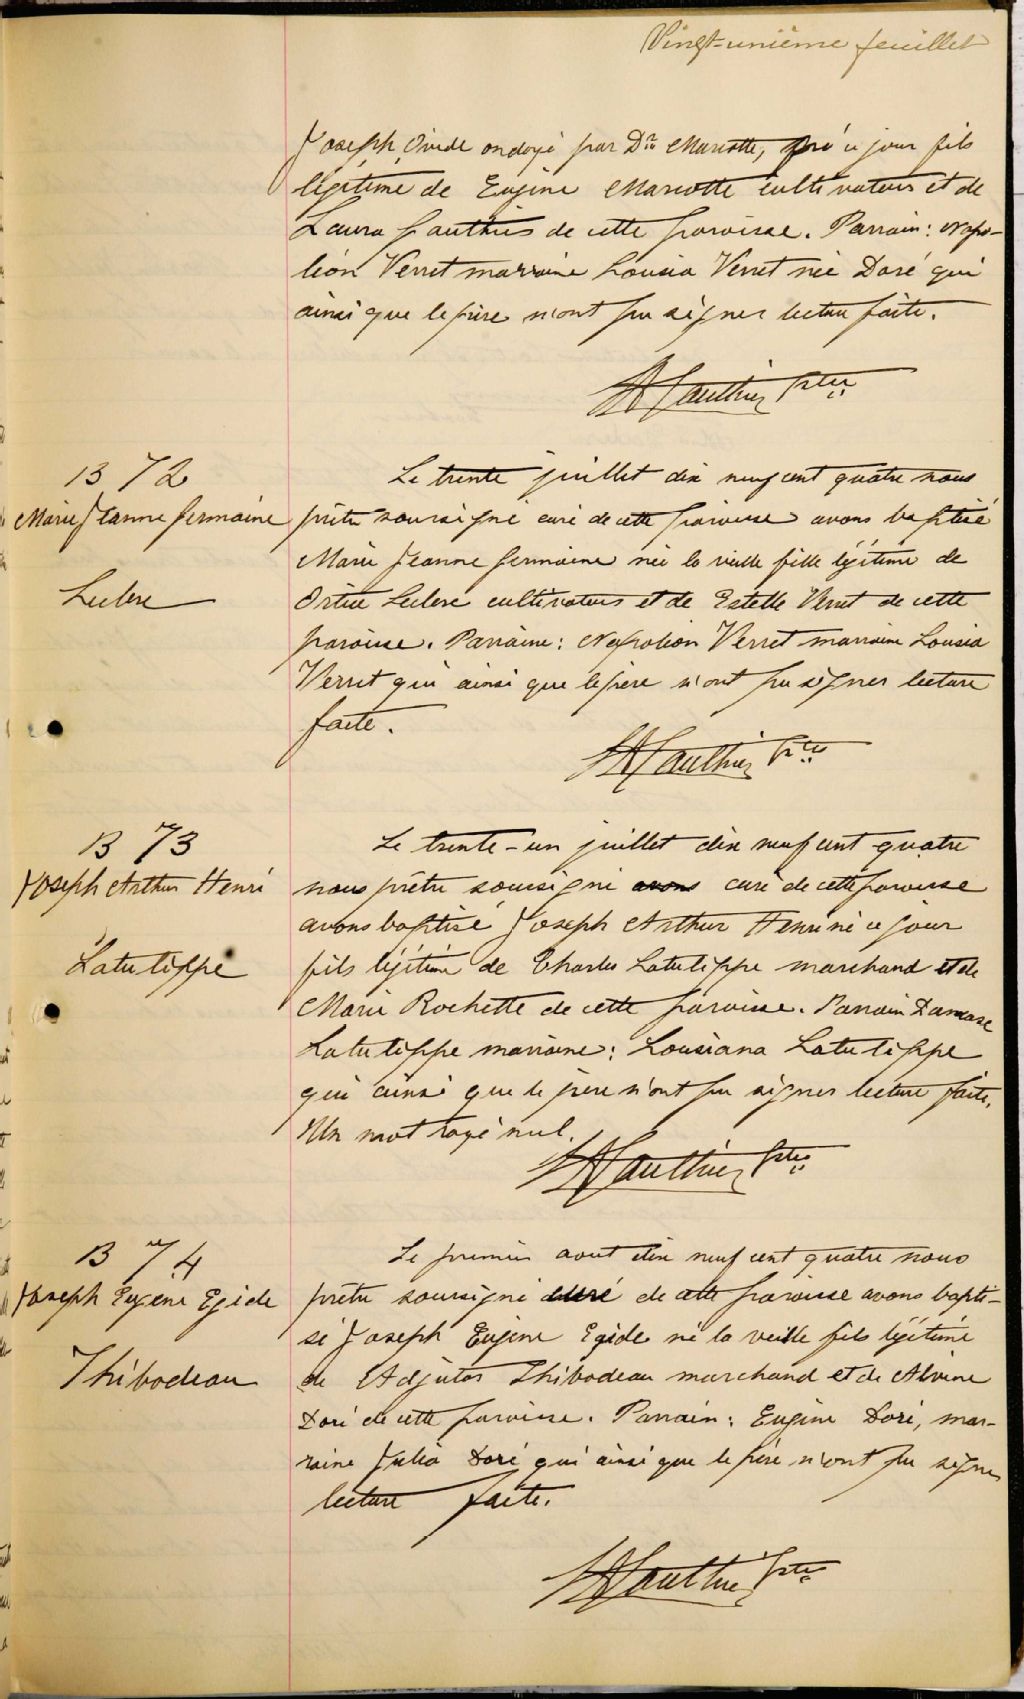 Vingt-unième feuillet
Joseph Ovide ondoyé par Dr Marcotte, né ce jour fils
légitime de Eugène Marcotte cultivateur et de
Laura Gauthier de cette paroisse. Parrain: Napo-
léon Verret marraine Lousia Verret née Doré qui
ainsi que le père n'ont pu signer lecture faite.
Gauthier Ptre
B 72
Marie Jeanne Germaine
Leclerc
Le trente juillet dix neuf cent quatre nous
prêtre soussigné curé de cette paroisse avons baptisé
Marie Jeanne Germaine née la veille fille légitime de
Ortice Leclerc cultivateur et de Estelle Verret de cette
paroisse. Parrain: Napoléon Verret marraine Lousia
Verret qui ainsi que le père n'ont pu signer lecture
faite.
Gauthier Ptre
B 73
Joseph Arthur Henri
Latulippe
Le trente-un juillet dix neuf cent quatre
nous prêtre soussigné avons curé de cette paroisse
avons baptisé Joseph Arthur Henri né ce jour
fils légitime de Charles Latulippe marchand et de
Marie Rochette de cette paroisse. Parrain Damase
Latulippe marraine: Lousiana Latulippe
qui ainsi que le père n'ont pu signer lecture faite.
Un mot rayé nul.
Gauthier Ptre
B 74
Joseph Eugène Egide
Thibodeau
Le premier aout dix neuf cent quatre nous
prêtre soussigné curé de cette paroisse avons bapti-
sé Joseph Eugène Egide né la veille fils légitime
de Adjutor Thibodeau marchand et de Alvine
Doré de cette paroisse. Parrain: Eugène Doré, mar-
raine Julia Doré qui ainsi que le père n'ont pu signer
lecture faite.
Gauthier Ptre